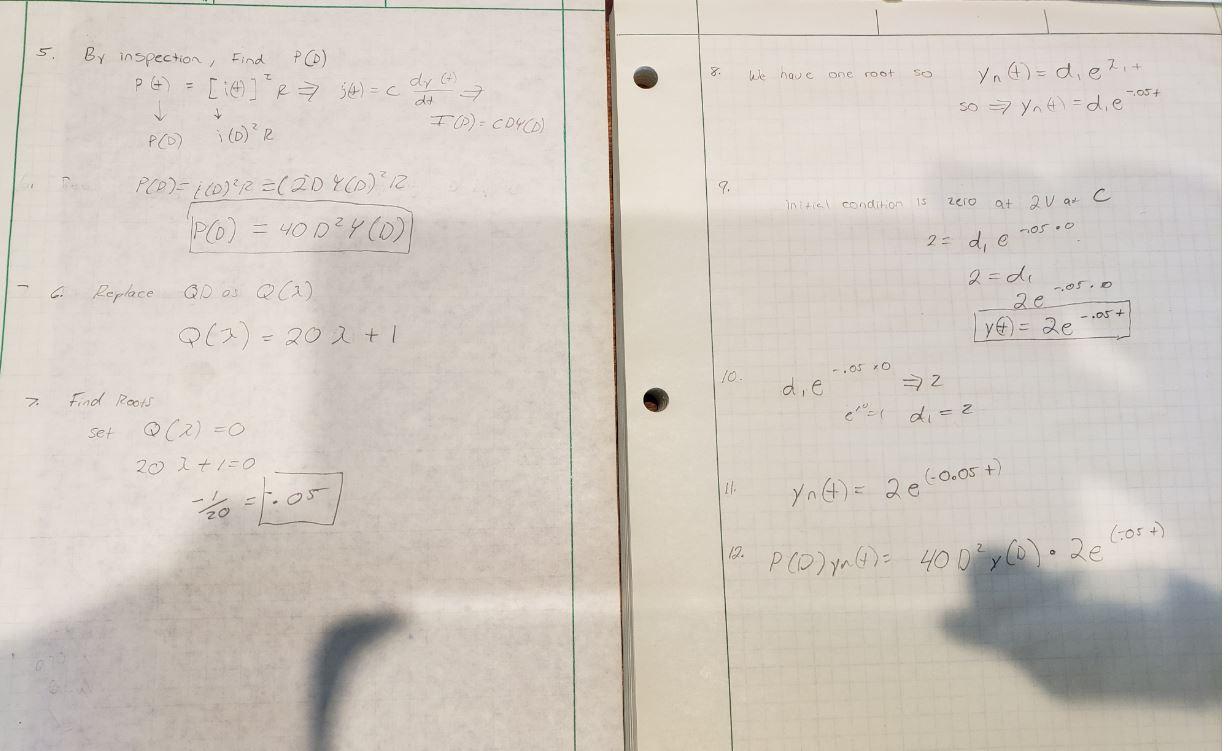 5. By inspection, Find P(D)
P(t) = [i(t)]² R ⇒ i(t) = C dy(t)/dt ⇒
↓ ↓
I(D) = CDY(D)
P(D) i(D)² R
P(D) = i(D)²R = (2D Y(D)²R
P(D) = 40 D² Y(D)
6. Replace QD as Q(λ)
Q(λ) = 20 λ + 1
7. Find Roots
set Q(λ) = 0
20 λ + 1 = 0
-1/20 = -.05
8. We have one root so yn(t) = d₁ e^λ₁t
so ⇒ yn(t) = d₁e^-.05t
9.
initial condition is zero at 2V at C
2 = d₁ e^-.05•0
2 = d₁
2e^-.05•0
y(t) = 2e^-.05t
10. d₁e^-.05×0 ⇒ 2
d₁ = 2
11. yn(t) = 2e^(-0.05t)
12. P(D)yn(t) = 40 D² y(D) • 2e^(-.05t)